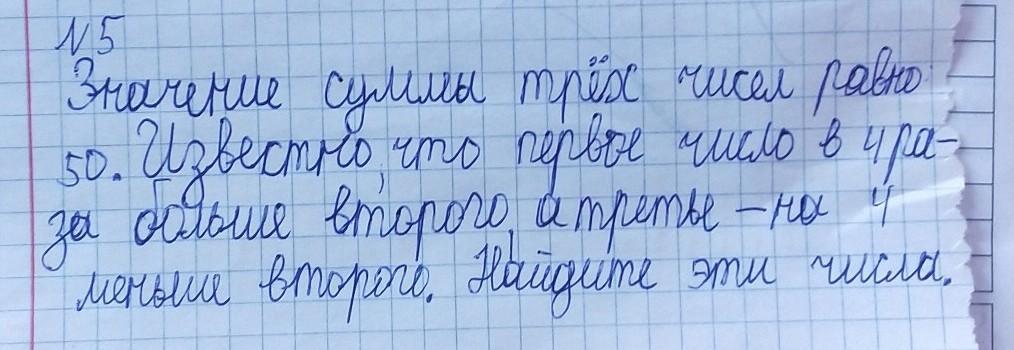 N5
Значение суммы трёх чисел равно
50. Известно, что первое число в 4 ра-
за больше второго, а третье - на 4
меньше второго. Найдите эти числа.